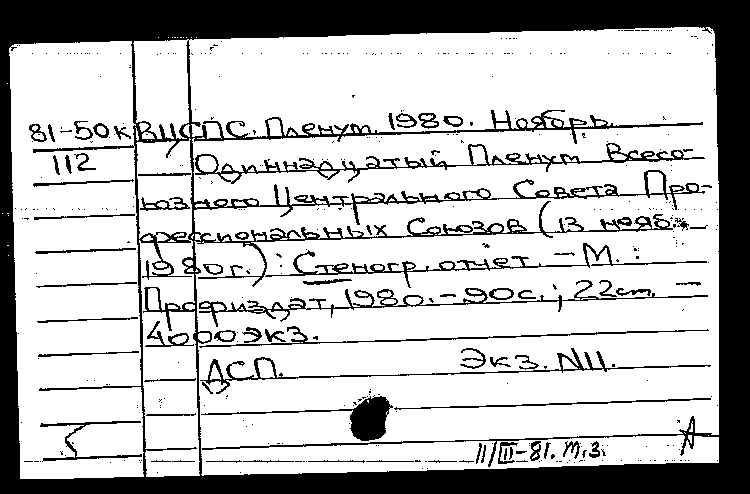 81-50к ВЦСПС. Пленум. 1980. Ноябрь.
112 Одиннадцатый Пленум Всесо-
юзного Центрального Совета Про-
фессиональных Союзов (13 нояб.
1980г.) : Стеногр. отчет. – М. :
Профиздат, 1980. – 90с. ; 22см. –
4000экз.
ДСП. Экз. N11.
11/III-81. М.З.